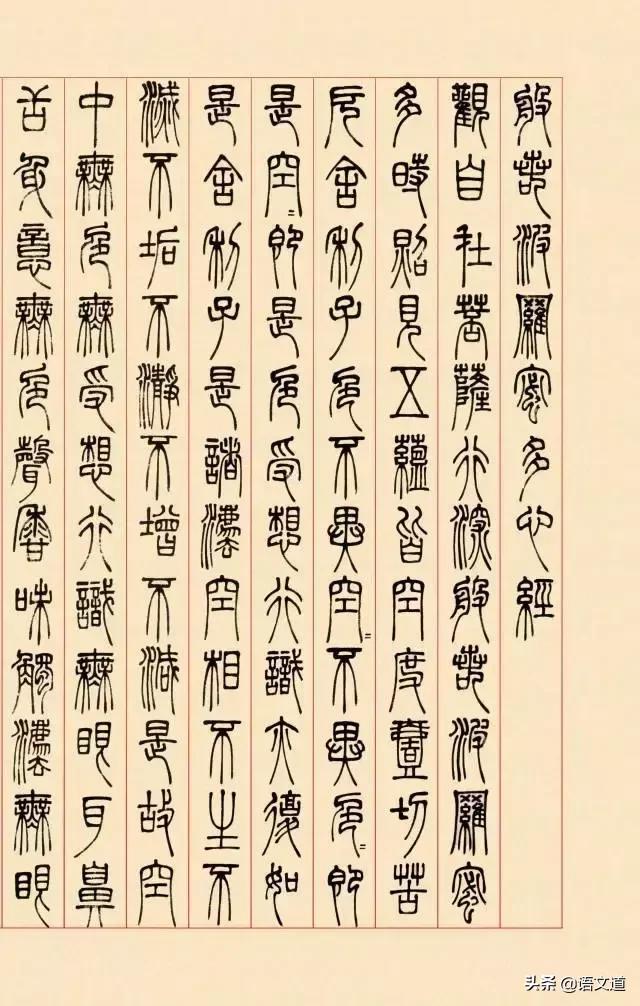 般若波羅蜜多心經
觀自在菩薩行深般若波羅蜜
多時照見五蘊皆空度壹切苦
厄舍利子色不異空=不異色=即
是空=即是色受想行識亦復如
是舍利子是諸法空相不生不
滅不垢不瀞不增不減是故空
中無色無受想行識無眼耳鼻
舌身意無色聲香味觸法無眼
头条 @语文道